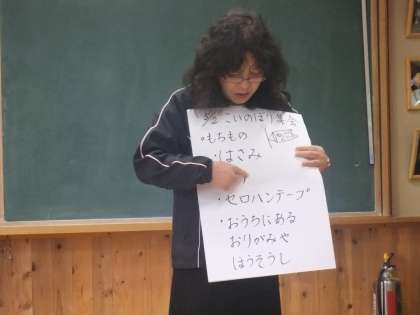 こいのぼり集会
・もちもの
・はさみ
・セロハンテープ
・おうちにある
おりがみや
ほうそうし